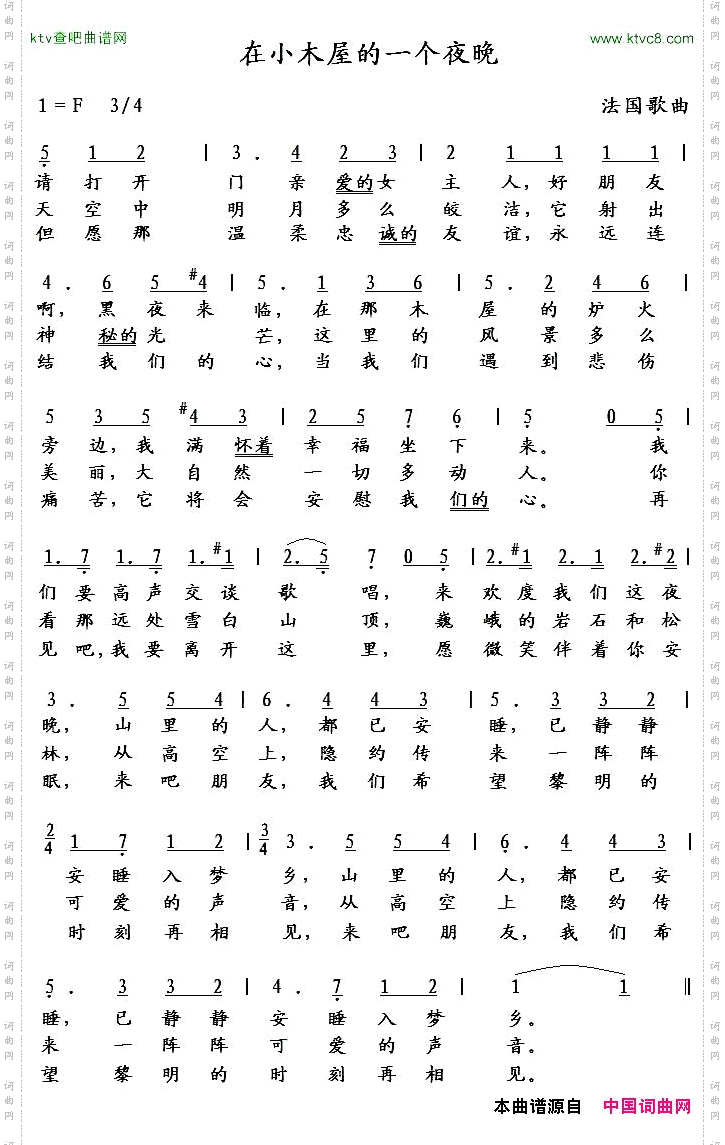 ktv查吧曲谱网
www.ktvc8.com
在小木屋的一个夜晚
1=F 3/4 法国歌曲
5 1 2 | 3. 4 2 3 | 2 1 1 1 1 |
请打开 门亲爱的女主人,好朋友
天空中 明月多么皎洁,它射出
但愿那 温柔忠诚的友谊,永远连
4. 6 5 #4 | 5. 1 3 6 | 5. 2 4 6 |
啊,黑夜来临,在那木屋的炉火
神秘的光芒,这里的风景多么
结我们的心,当我们遇到悲伤
5 3 5 #4 3 | 2 5 7 6 | 5 0 5 |
旁边,我满怀着幸福坐下来。我
美丽,大自然一切多动人。你
痛苦,它将会安慰我们的心。再
1. 7 1. 7 1. #1 | 2. 5 7 0 5 | 2. #1 2. 1 2. #2 |
们要高声交谈歌唱,来欢度我们这夜
看那远处雪白山顶,巍峨的岩石和松
见吧,我要离开这里,愿微笑伴着你安
3. 5 5 4 | 6. 4 4 3 | 5. 3 3 2 |
晚,山里的人,都已安睡,已静静
林,从高空上,隐约传来一阵阵
眠,来吧朋友,我们希望黎明的
2/4 1 7 1 2 | 3/4 3. 5 5 4 | 6. 4 4 3 |
安睡入梦乡,山里的人,都已安
可爱的声音,从高空上隐约传
时刻再相见,来吧朋友,我们希
5. 3 3 2 | 4. 7 1 2 | 1 1 ‖
睡,已静静安睡入梦乡。
来一阵阵可爱的声音。
望黎明的时刻再相见。
本曲谱源自 中国词曲网